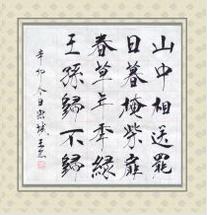 山中相送罷
日暮掩柴扉
春草年年綠
王孫歸不歸
辛卯冬日